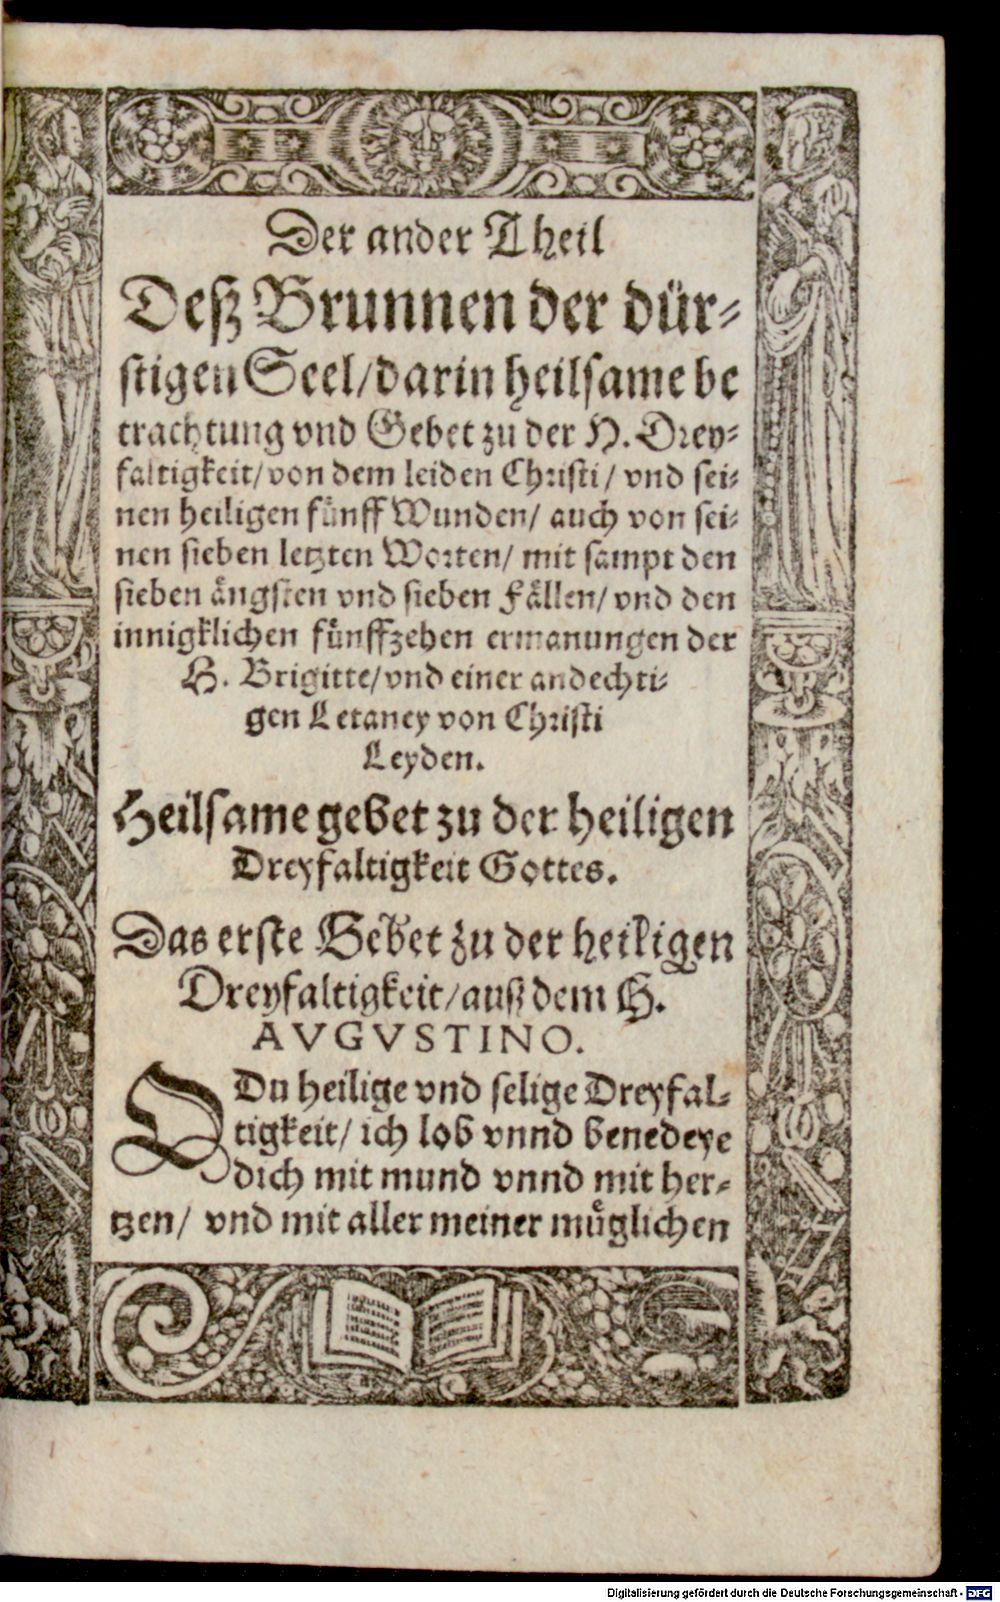 Der ander Theil
Deß Brunnen der dür-
stigen Seel/darin heilsame be
trachtung vnd Gebet zu der H. Drey-
faltigkeit/von dem leiden Christi/ vnd sei-
nen heiligen fünff Wunden/ auch von sei-
nen sieben letzten Worten/ mit sampt den
sieben ängsten vnd sieben Fällen/ vnd den
innigklichen fünffzehen ermanungen der
H. Brigitte/vnd einer andechti-
gen Letaney von Christi
Leyden.
Heilsame gebet zu der heiligen
Dreyfaltigkeit Gottes.
Das erste Gebet zu der heiligen
Dreyfaltigkeit/auß dem H.
AVGVSTINO.
O Du heilige vnd selige Dreyfal-
tigkeit/ ich lob vnnd benedeye
dich mit mund vnnd mit her-
tzen/ vnd mit aller meiner müglichen
Digitalisierung gefördert durch die Deutsche Forschungsgemeinschaft - DFG